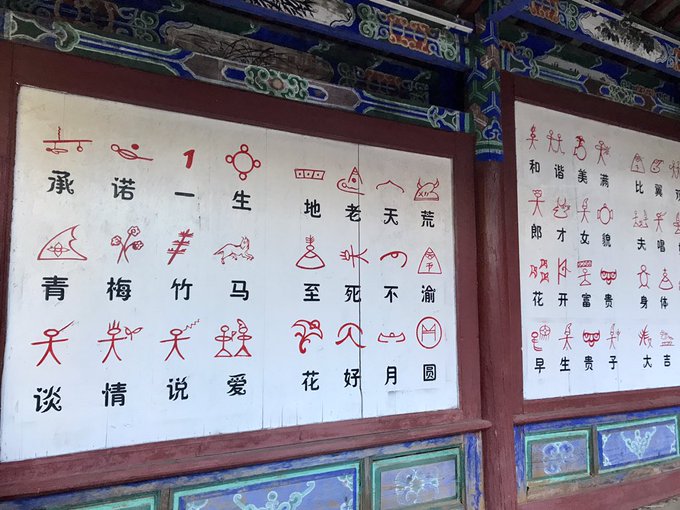 承诺一生 地老天荒
青梅竹马 至死不渝
谈情说爱 花好月圆
和谐美满 比翼
郎才女貌 夫唱
花开富贵 身体
早生贵子 大吉